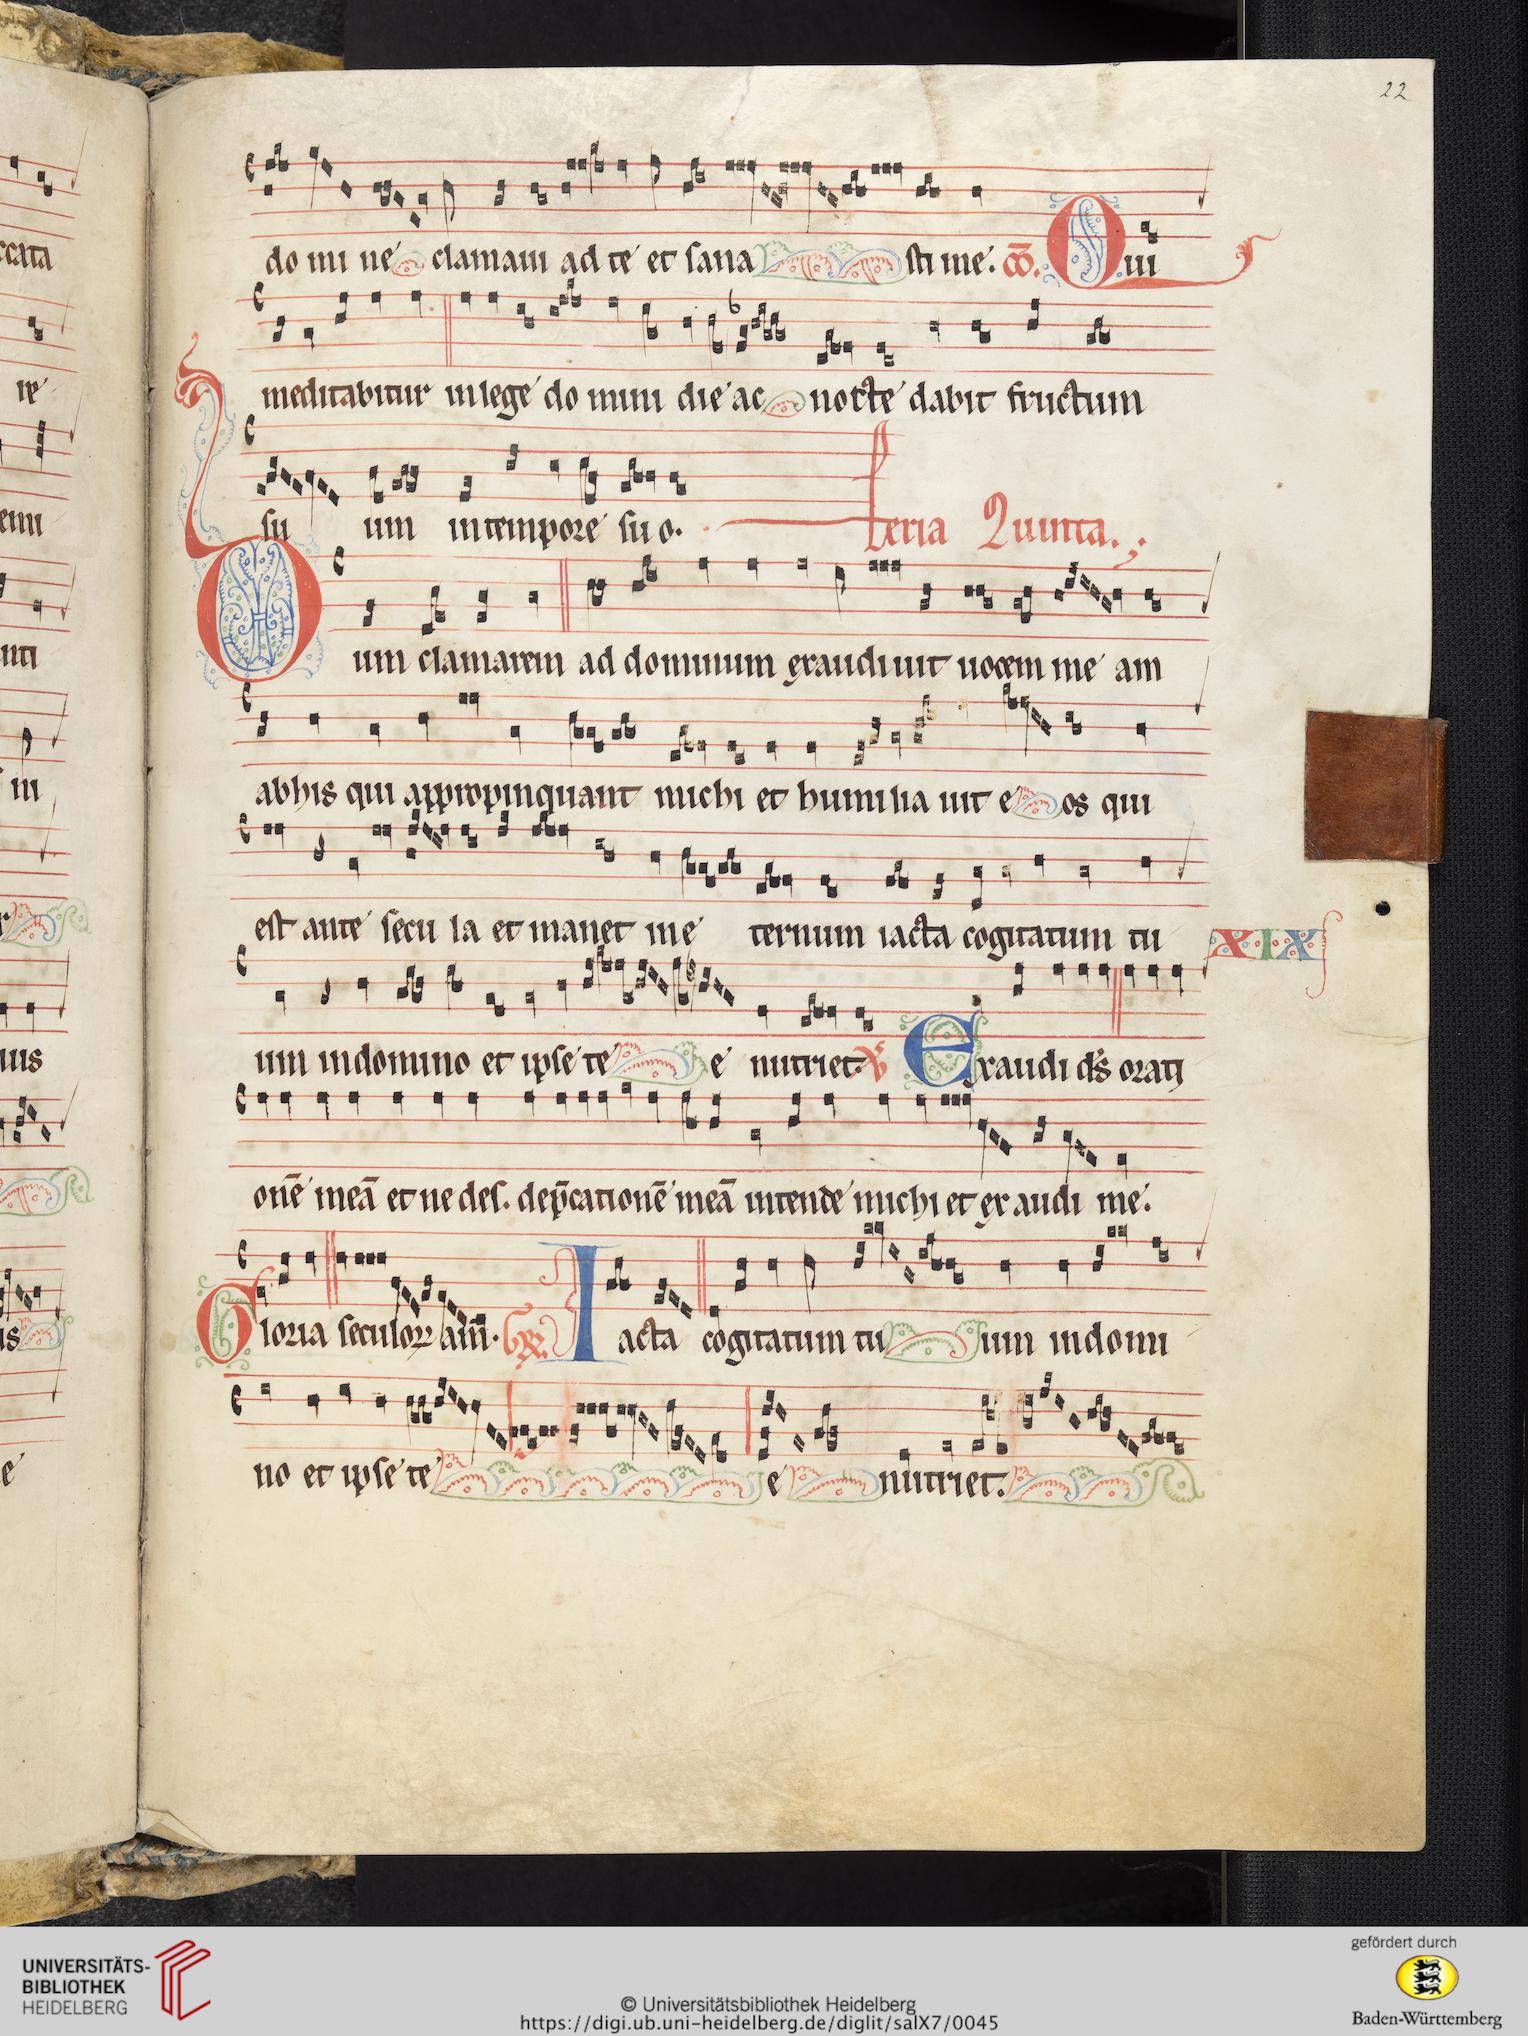 22
do mi ne clamaui ad te et sana sti me. co. Qui
meditabitur in lege do mini die ac nocte dabit fructum
su um in tempore su o. feria Quinta.
Dum clamarem ad dominum exaudiuit uocem me am
ab his qui appropinquant michi et humilia uit e os qui
est ante secu la et manet in e ternum iacta cogitatum tu
XIX
um in domino et ipse te e nutriet. Exaudi ds orati
onē meā et ne des. dep̄cationē meā intende michi et exaudi me.
Gloria seculorꝝ am̄. Iacta cogitatum tu um in domi
no et ipse te e nutriet.
ccata
re
enu
uti
in
uus
us
e
UNIVERSITÄTS-
BIBLIOTHEK
HEIDELBERG
© Universitätsbibliothek Heidelberg
https://digi.ub.uni-heidelberg.de/diglit/salX7/0045
gefördert durch
Baden-Württemberg